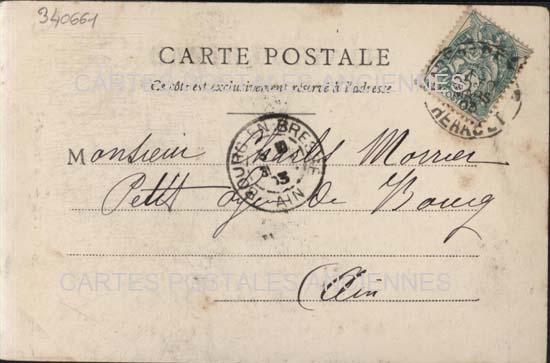 340661
CARTE POSTALE
Ce côté est exclusivement réservé à l'adresse
CARTES POSTALES ANCIENNES
HERAULT
BOURG-EN-BRESSE
AIN
Monsieur Charles Morrier
Petit Lycée de Bourg
CARTES POSTALES ANCIENNES
Ain